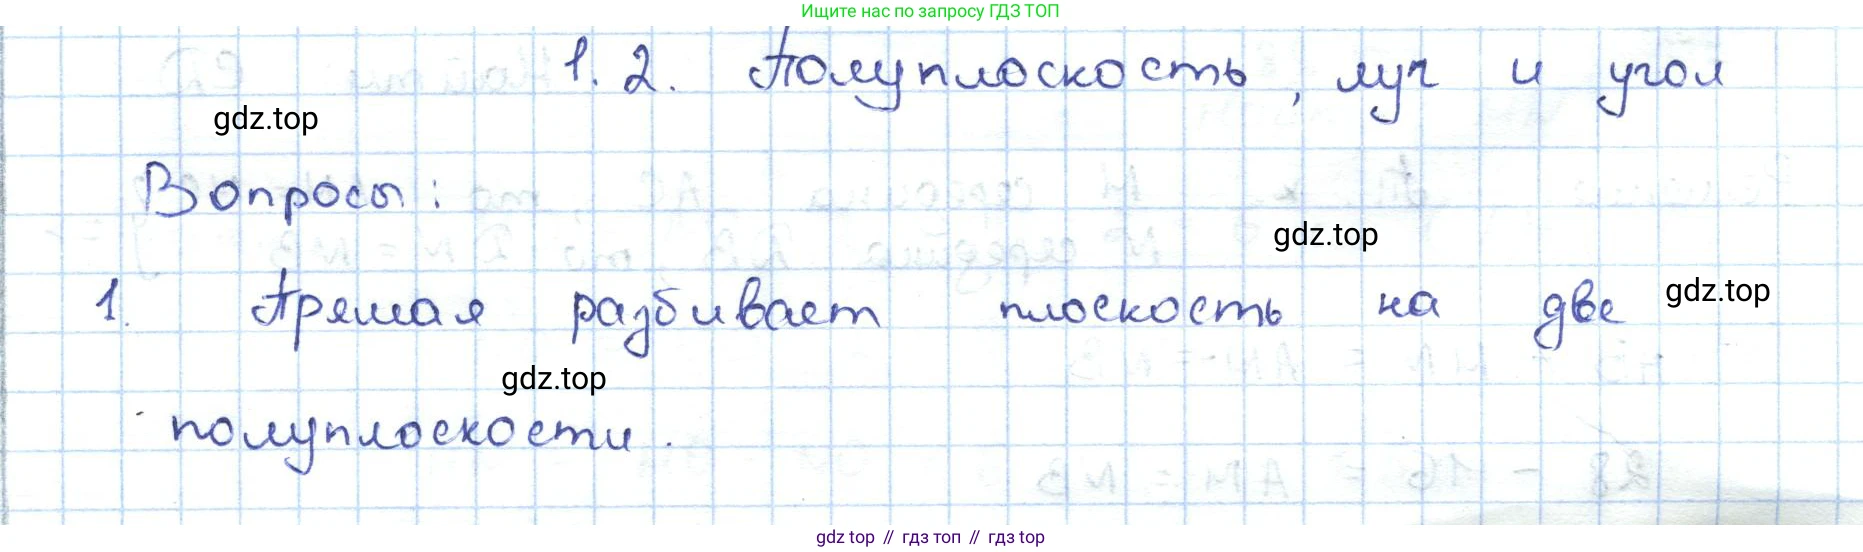 Ищите нас по запросу ГДЗ ТОП
1.2. Полуплоскость, луч и угол
gdz.top
Вопросы:
gdz.top
1. Прямая разбивает плоскость на две
gdz.top
gdz.top
полуплоскости.
gdz.top // гдз топ // gdz top